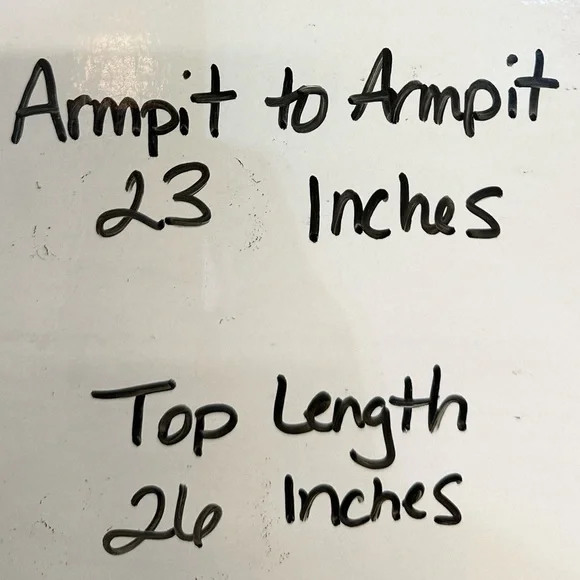 Armpit to Armpit
23 Inches
Top Length
26 Inches